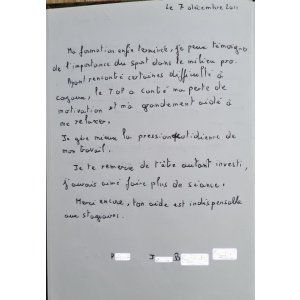 Le 7 décembre 2011
Ma formation enfin terminée, je peux témoigner
de l'importance du sport dans le milieu pro.
Ayant rencontré certaines difficulté à
le TOP a contré ma perte de
motivation et m'a grandement aidé à
me relaxer.
Je gère mieux la pression quotidienne de
mon travail.
Je te remercie de t'être autant investi,
j'aurais aimé faire plus de séance.
Merci encore, ton aide est indispensable
aux stagiaires.
P
J
B